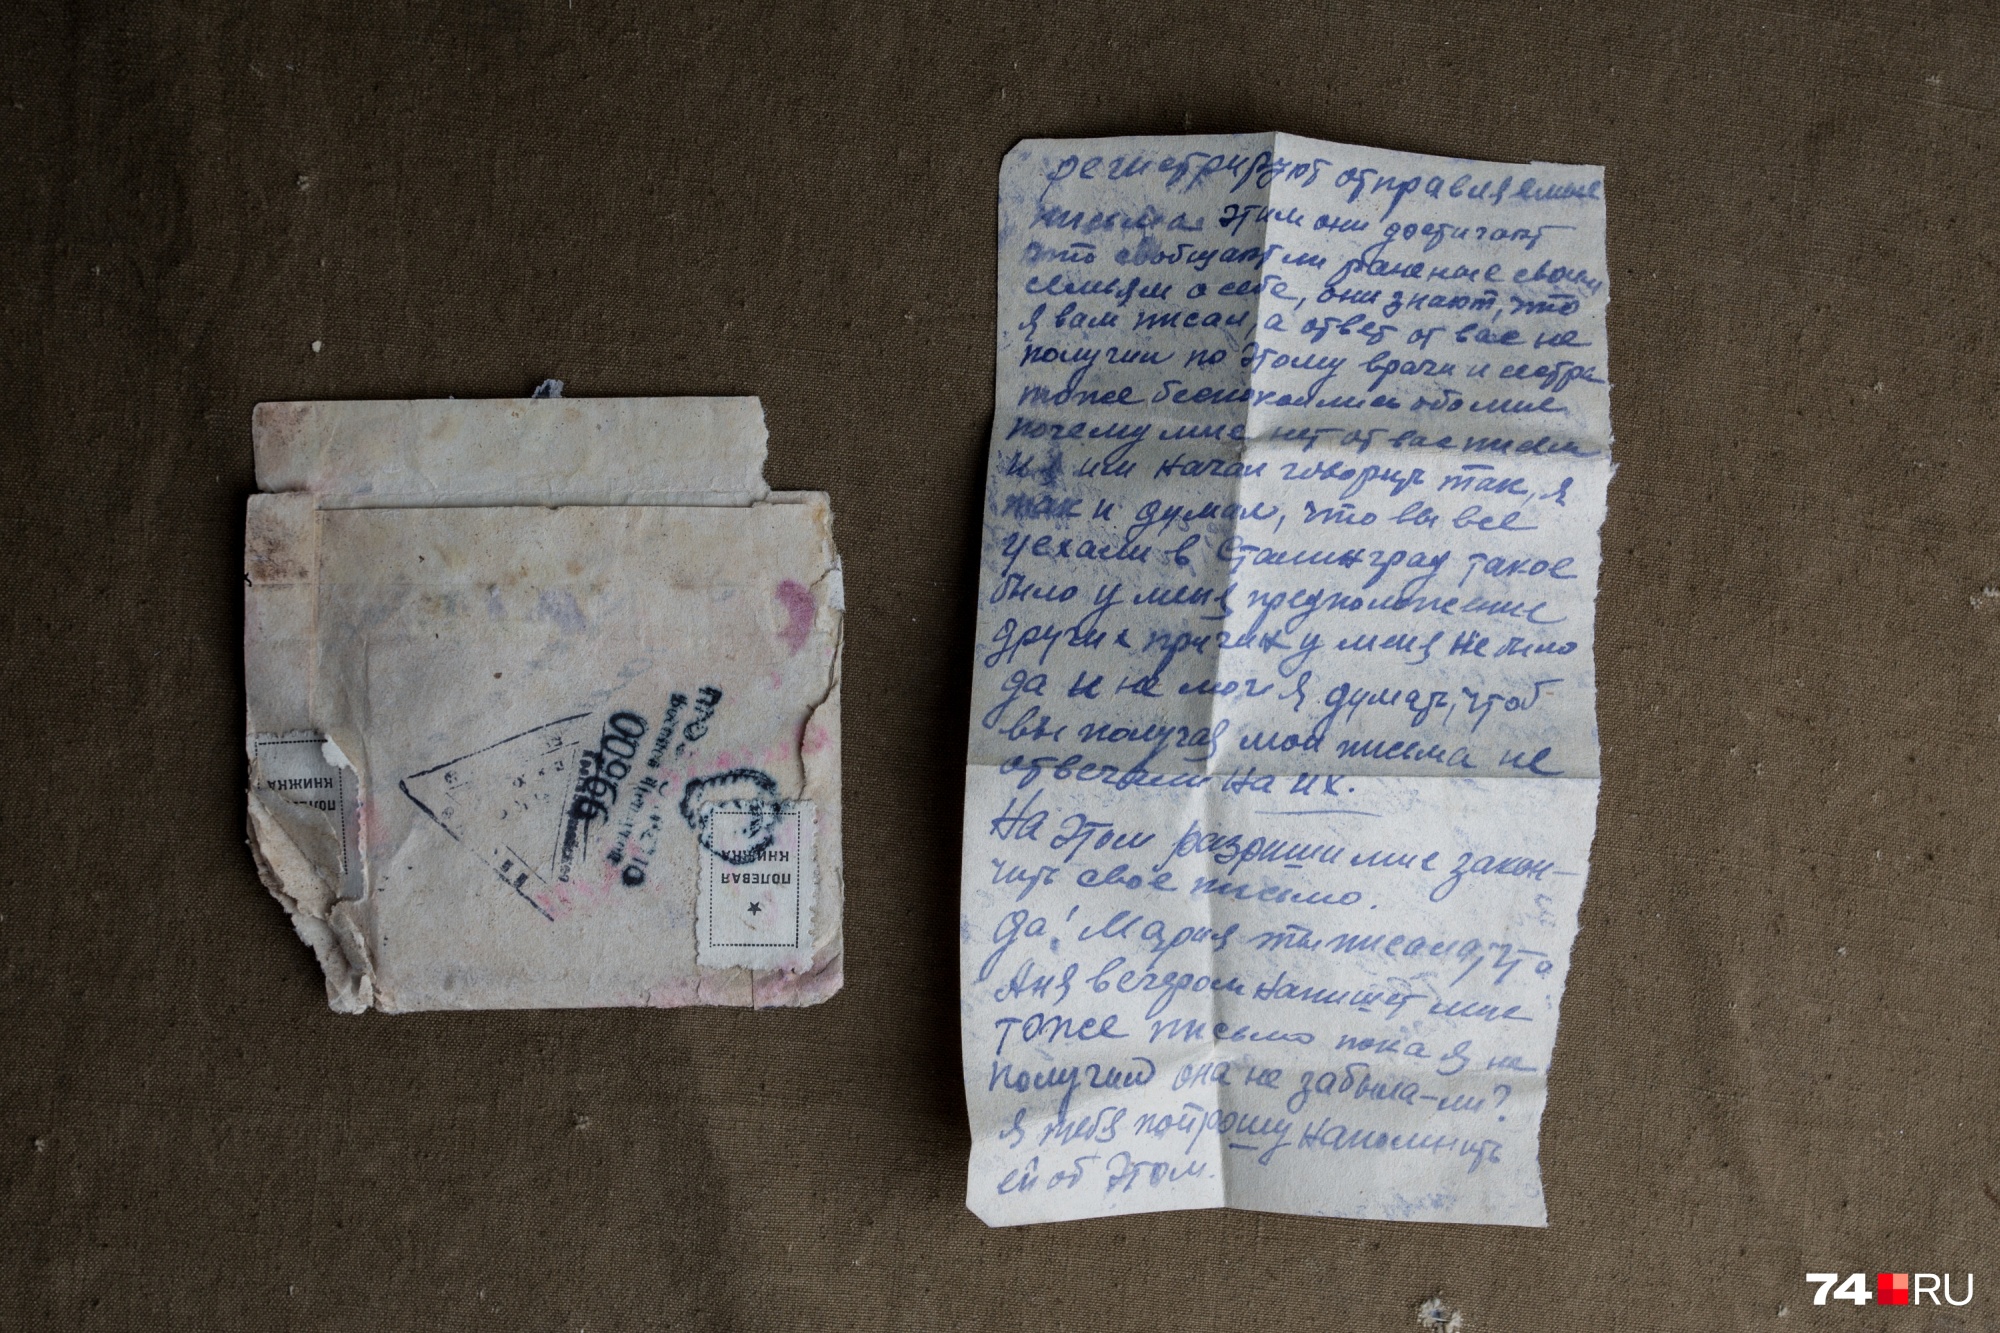 регистрируют отправляемые
письма. Этим они достигают
что сообщают ли раненые своим
семьям о себе, они знают, что
я вам писал, а ответ от вас не
получил по этому врачи и сестра
тоже беспокоились обо мне
почему мне нет от вас писем
и я им начал говорить так, я
так и думал, что вы все
уехали в Сталинград такое
было у меня предположение
других причин у меня не было
да и не мог я думать, чтоб
вы получая мои письма не
отвечали на их.
На этом разриши мне закон-
чить свое письмо.
Да! Мария ты писала, что
Аня вечером напишет мне
тоже письмо пока я не
получил она не забыла-ли?
Я тебя попрошу напомнить
ей об этом.
ПОЛЕВАЯ
КНИЖКА
КНИЖКА
00966
74 RU